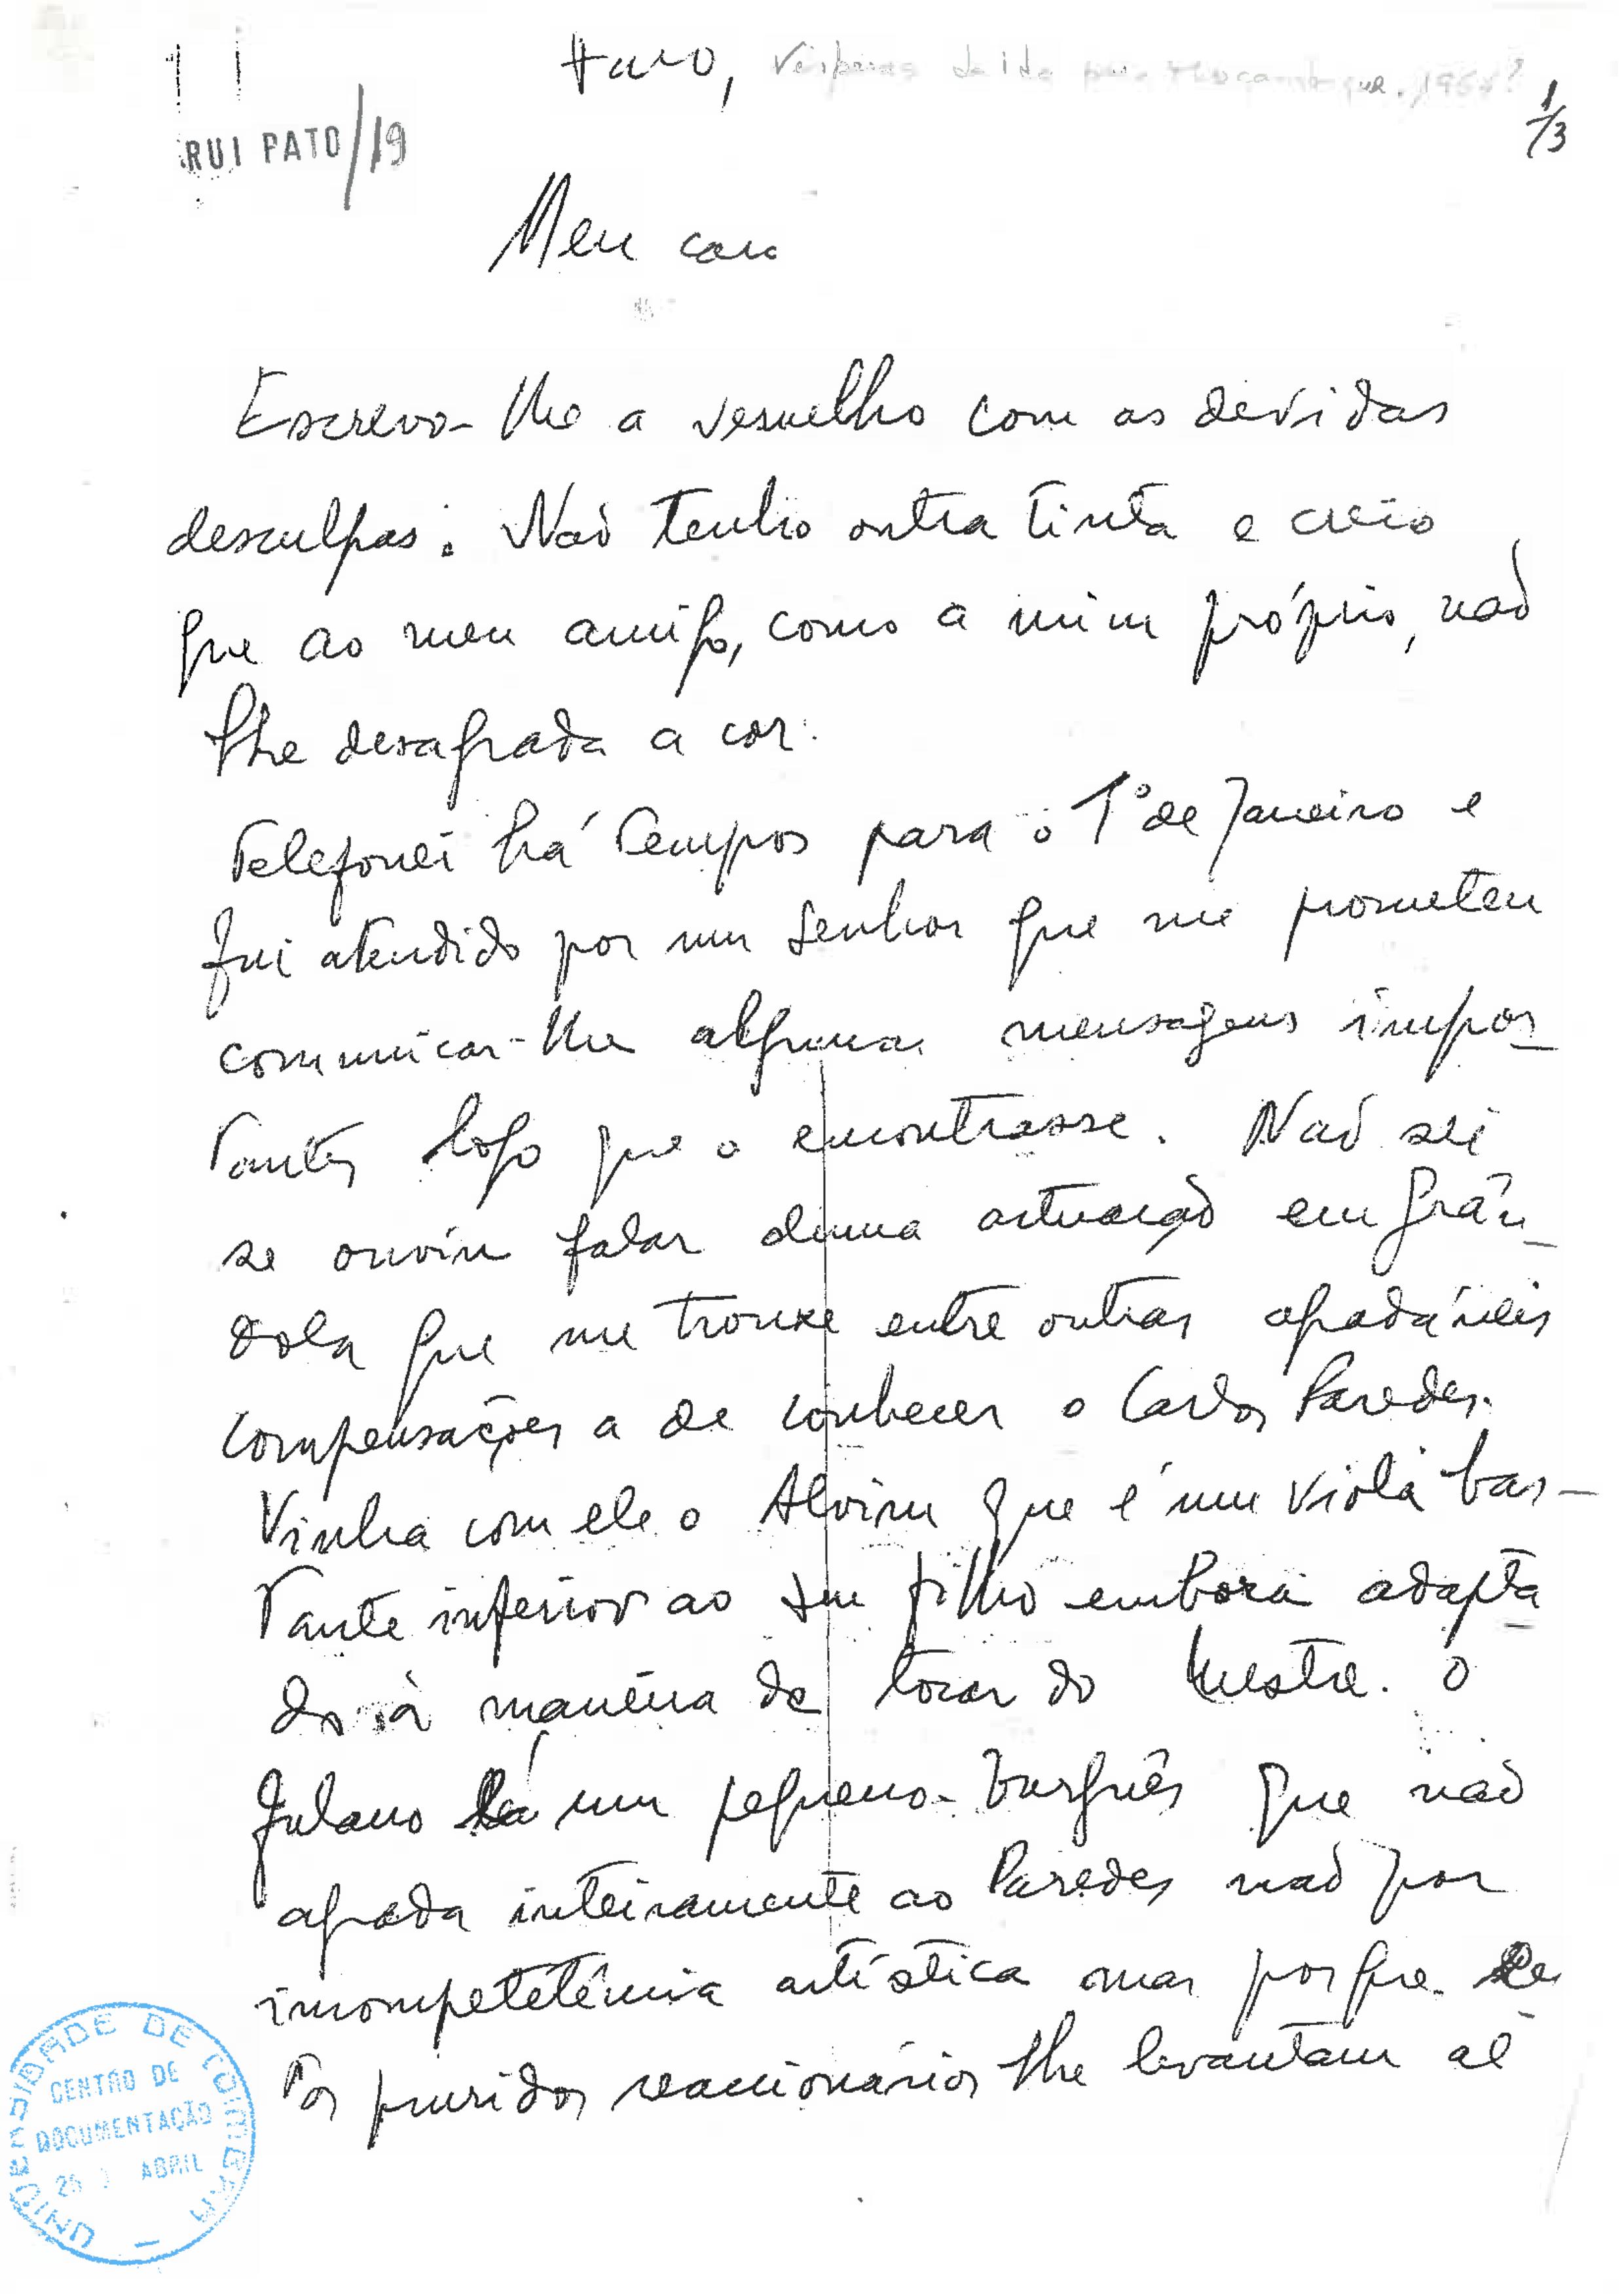 Faro, Vésperas da ida para Moçambique. 1964?
1/3
RUI PATO/19
Meu caro
Escrevo-lhe a vermelho com as devidas
desculpas. Não tenho outra tinta e creio
que ao meu amigo, como a mim próprio, não
lhe desagrada a cor.
Telefonei há tempos para o 1º de Janeiro e
fui atendido por um senhor que me prometeu
comunicar-lhe algumas mensagens impor
tantes logo que o encontrasse. Não sei
se ouviu falar duma actuação em Grân_
dola que me trouxe entre outras agradáveis
compensações a de conhecer o Carlos Paredes.
Vinha com ele o Alvim que é um viola bas-
tante inferior ao seu filho embora adapta
do à maneira de tocar do Mestre. O
fulano é um pequeno-burguês que não
agrada inteiramente ao Paredes não por
incompetetência artística mas porque
pruridos reaccionários lhe levantam
UNIVERSIDADE DE COIMBRA
CENTRO DE
DOCUMENTAÇÃO
25 ABRIL